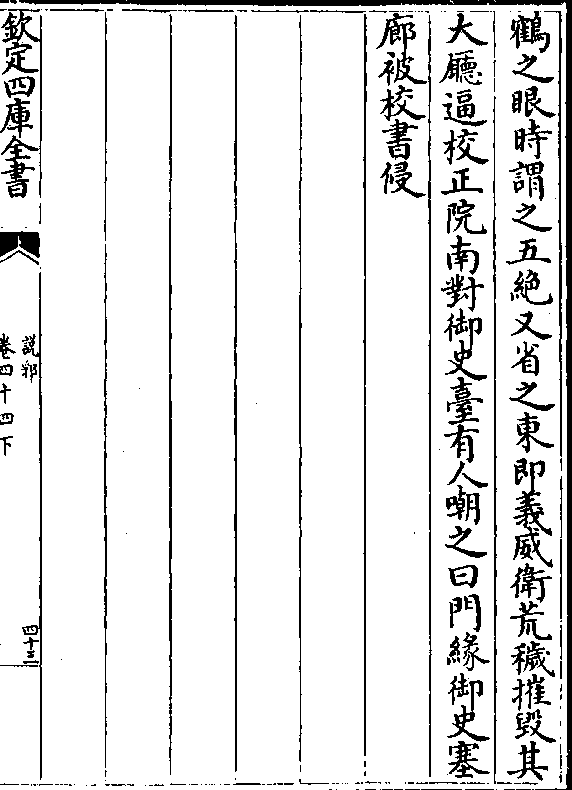 鶴之眼時謂之五絶又省之東即義威衛荒穢摧毁其
大廳逼校正院南對御史臺有人嘲之曰門緣御史塞
廊被校書侵
欽定四庫全書
説郛
卷四十四下
四十三